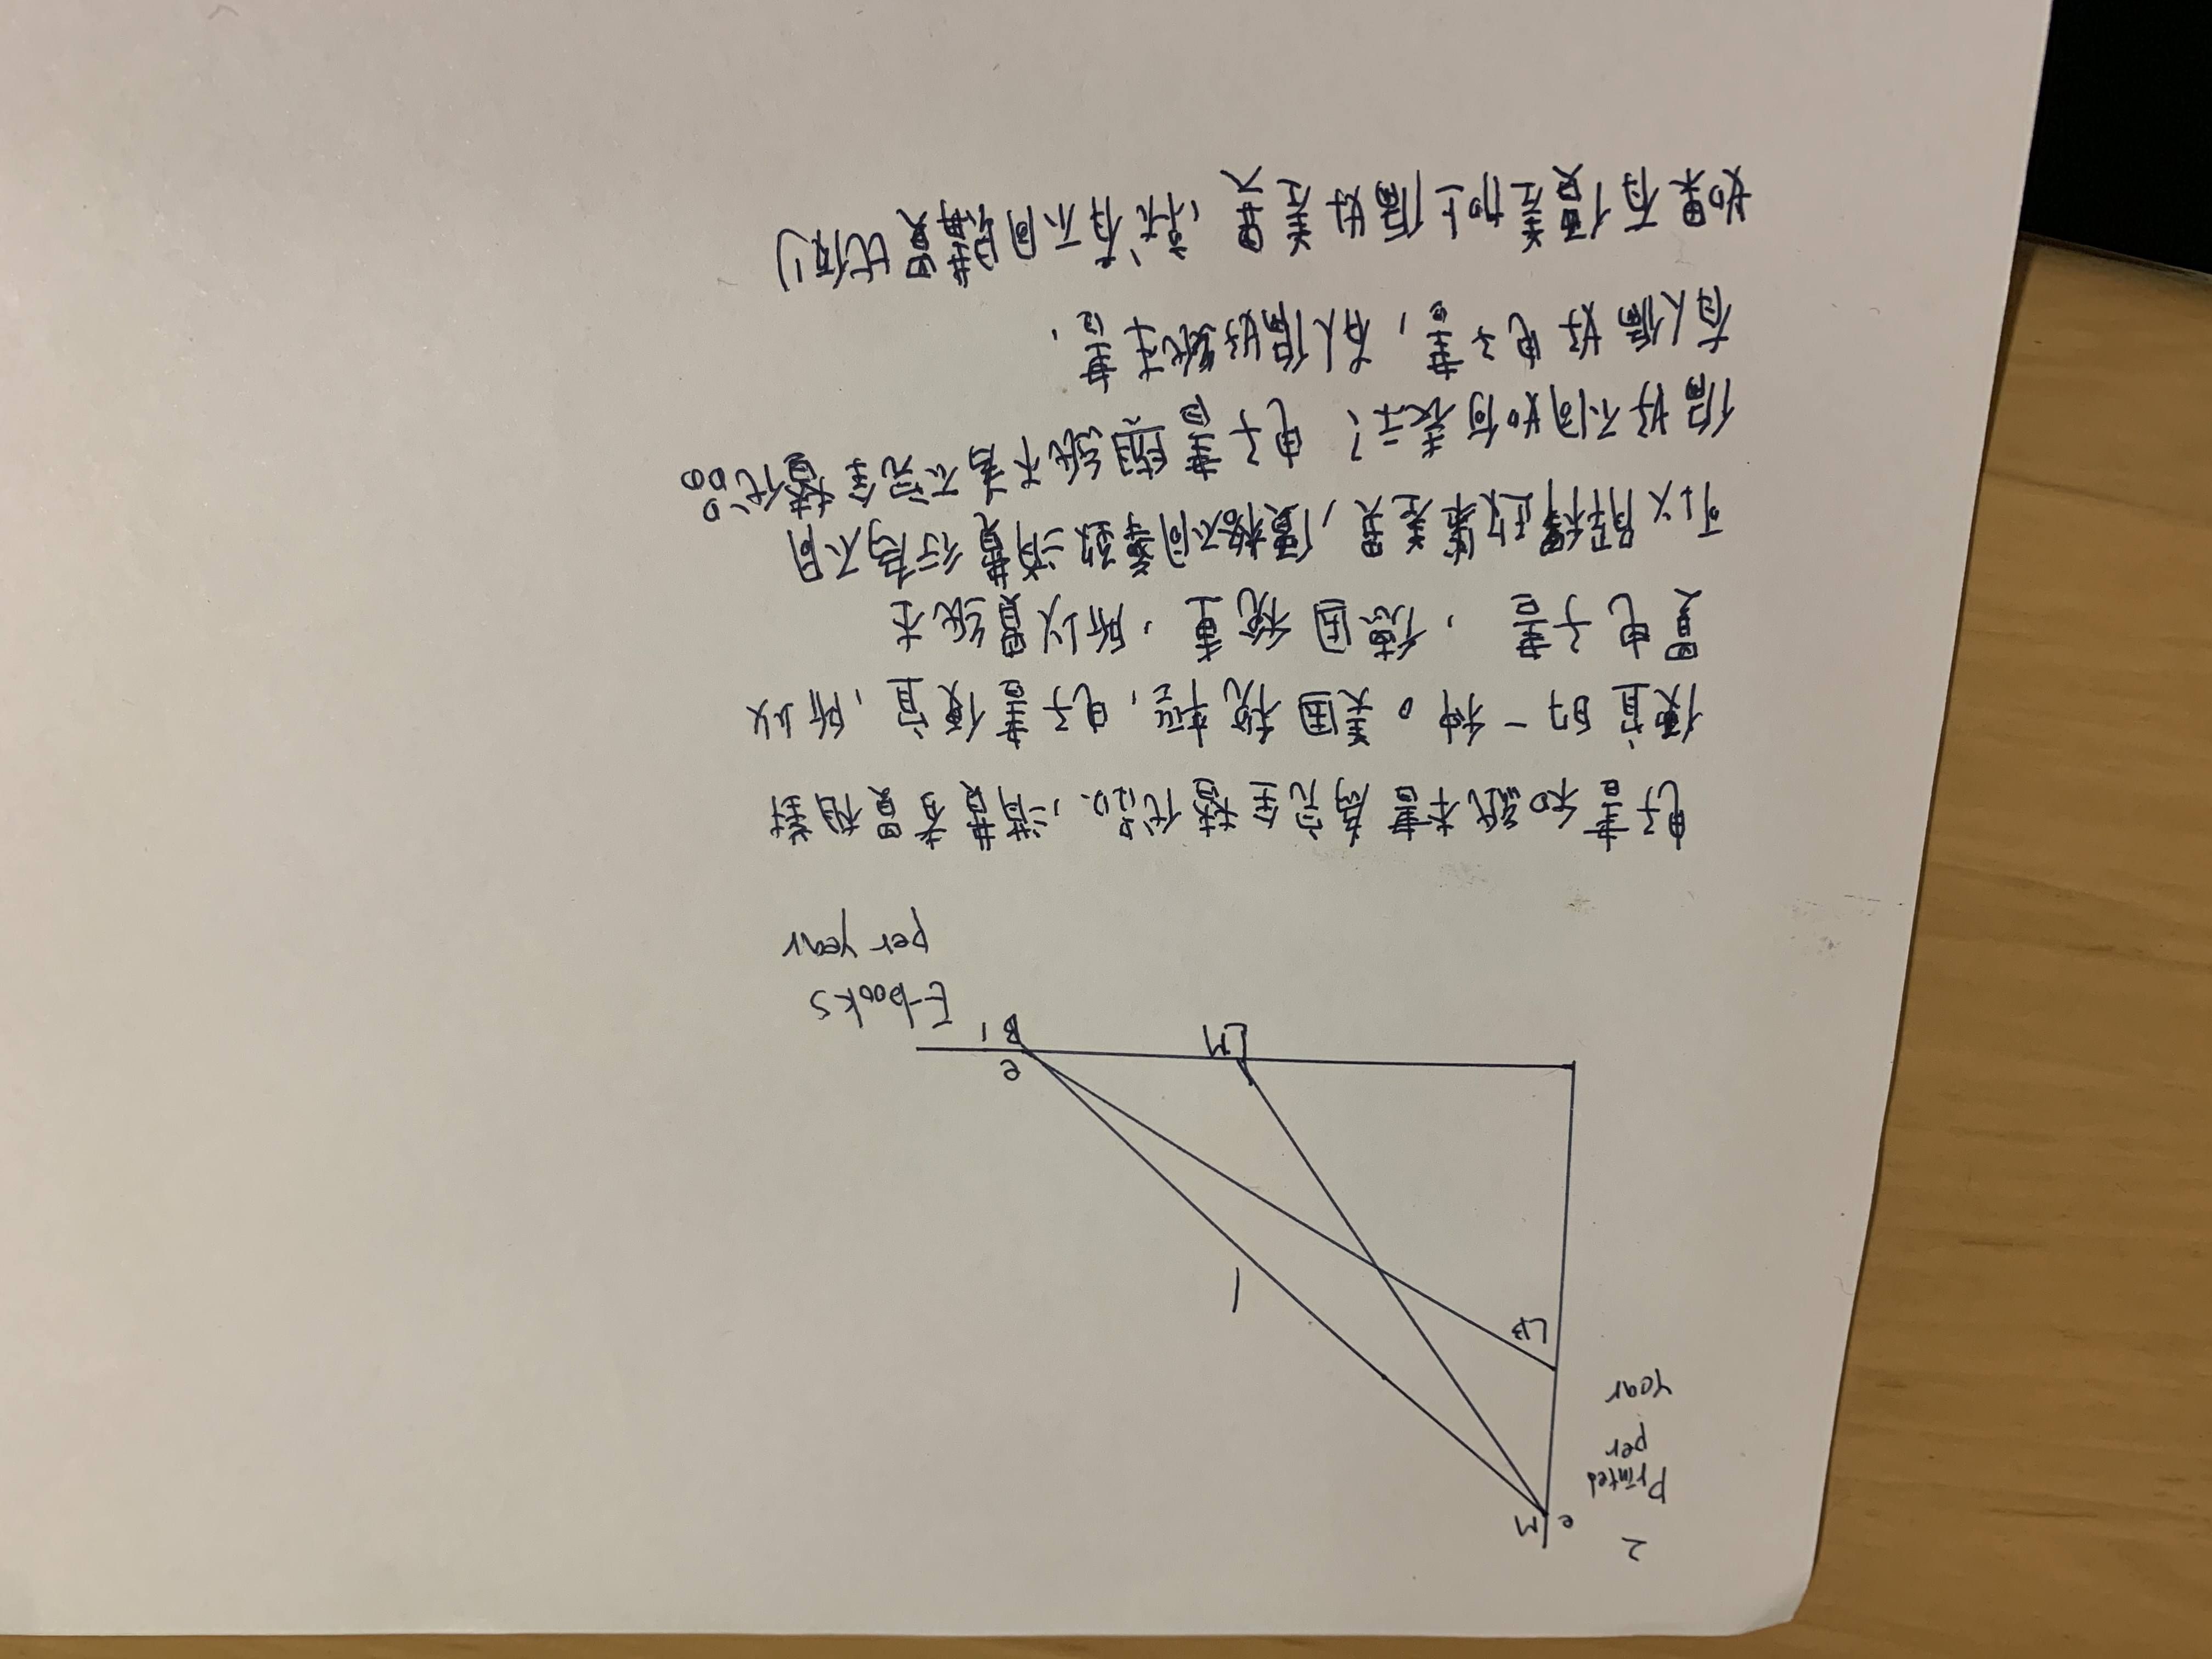 2
Printed
per
year
e
M
LB
I
LM
e
B
1
E-books
per year
电子書和紙本書為完全替代品,消費者買相對
便宜的一种。美国稅輕,电子書便宜,所以
買电子書,德国稅重,所以買紙本
可以解釋政策差異,價格不同導致消費行為不同
偏好不同如何表示?电子書與紙本書不完全替代品
有人偏好电子書,有人偏好紙本書.
如果有價差加上偏好差異,就有不同購買比例